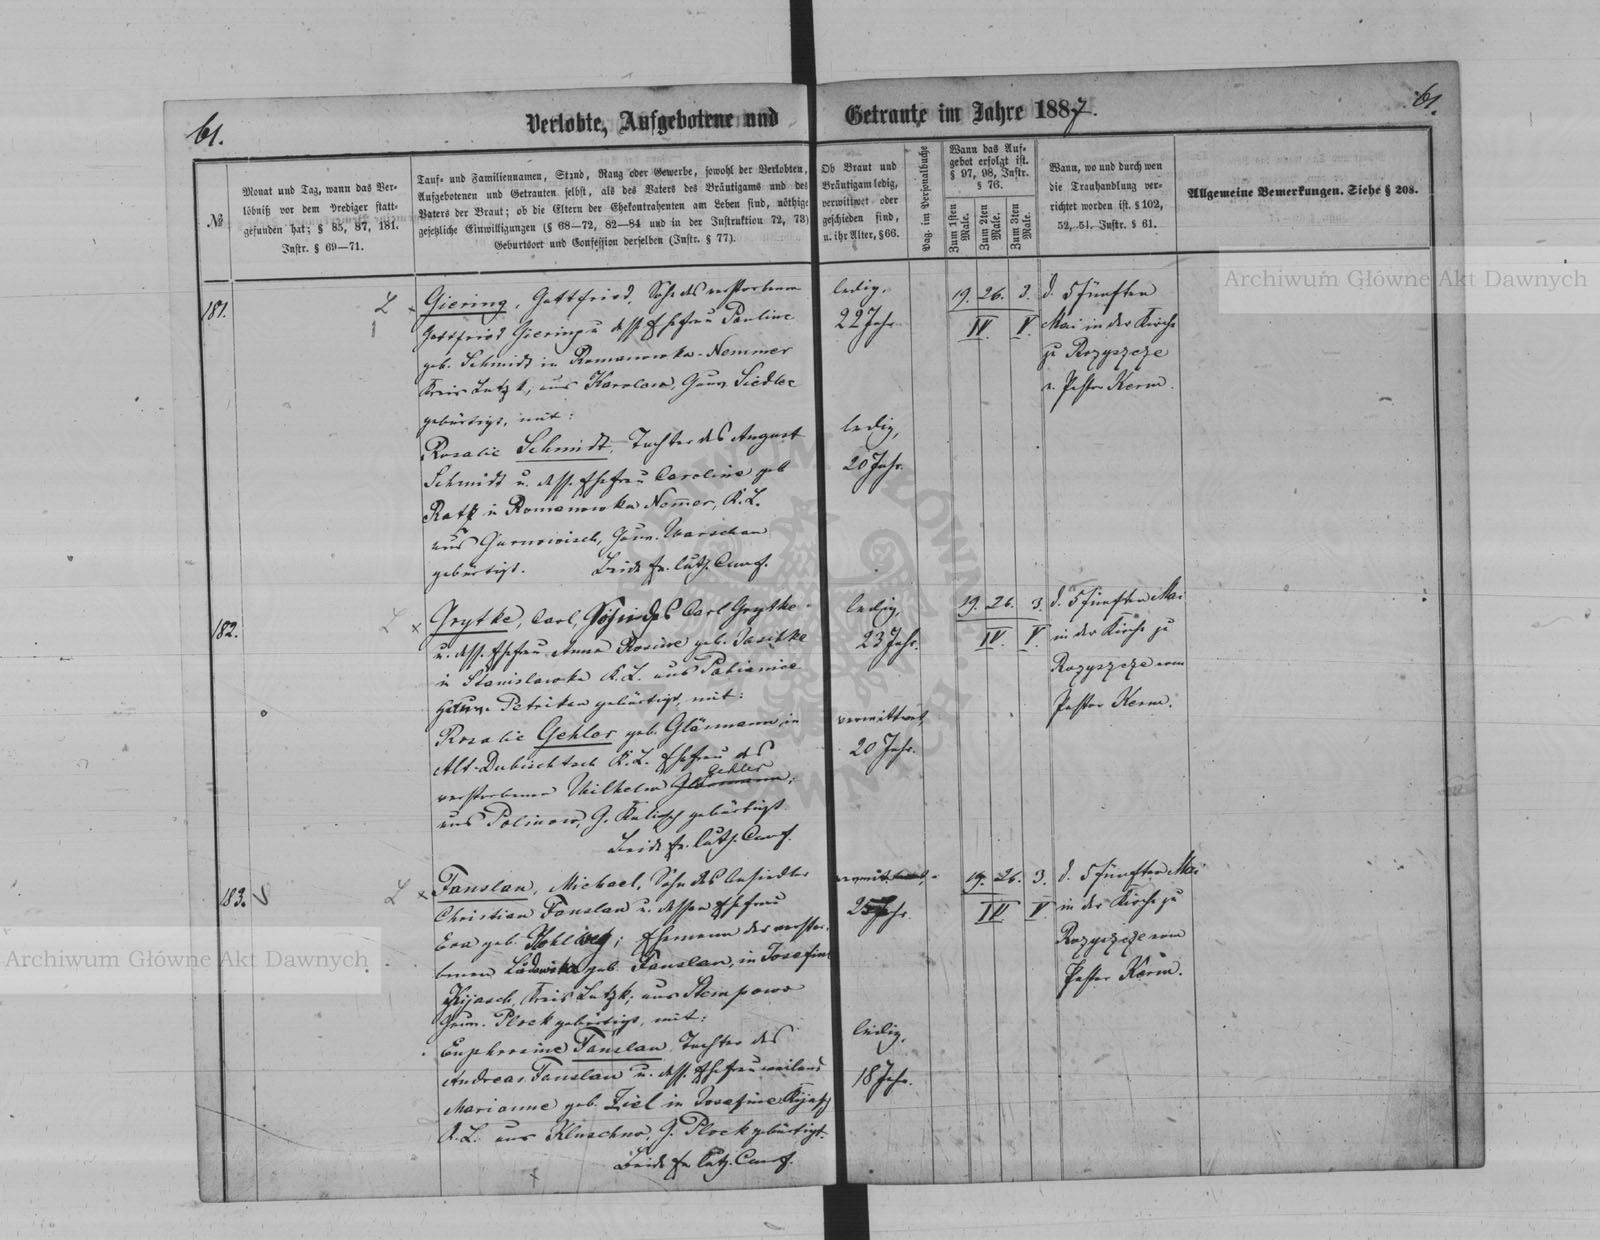 61.
Verlobte, Aufgebotene und Getraute im Jahre 1887.
61.
№
Monat und Tag, wann das Ver-
löbniß vor dem Prediger statt-
gefunden hat; § 85, 87, 181.
Instr. § 69—71.
Tauf- und Familiennamen, Stand, Rang oder Gewerbe, sowohl der Verlobten,
Aufgebotenen und Getrauten selbst, als des Vaters des Bräutigams und des
Vaters der Braut; ob die Eltern der Ehekontrahenten am Leben sind, nöthige
gesetzliche Einwilligungen (§ 68—72, 82—84 und in der Instruktion 72, 73)
Geburtsort und Confession derselben (Instr. § 77).
Ob Braut und
Bräutigam ledig,
verwittwet oder
geschieden sind,
u. ihr Alter, § 66.
Pag. im Personalbuche
Wann das Auf-
gebot erfolgt ist.
§ 97, 98, Instr.
§ 76.
Zum 1sten Male.
Zum 2ten Male.
Zum 3ten Male.
Wann, wo und durch wen
die Trauhandlung ver-
richtet worden ist. § 102,
52, 51, Instr. § 61.
Allgemeine Bemerkungen. Siehe § 208.
181.
Giering, Gottfried, Sohn des verstorbenen
Gottfried Giering u. dess. Ehefrau Pauline
geb. Schmidt in Romanowka-Nemmer
Kreis Lutzk, aus Karolew, Gouv. Siedlec
gebürtigt, mit:
Rosalie Schmidt, Tochter des August
Schmidt u. dess. Ehefrau Caroline geb
Ratz in Romanowka Nemmer, K. L.
aus Gurnowisch, Gouv. Warschau
gebürtigt. Beide ev. luth. Conf.
ledig,
22 Jahr.
ledig,
20 Jahr.
19. 26. 3.
IV. V.
d. 5 fünften
Mai in der Kirche
zu Rozyszcze
v. Pastor Kerm.
182.
Grytke, Carl, Sohn des Carl Grytke
u. dess. Ehefrau Anna Rosine geb. Jaschke
in Stanislawka K. L. aus Pabianice
Gouv. Petrikau gebürtigt, mit:
Rosalie Gehler geb. Gläsmann, in
Alt-Dubischtsch K. L. Ehefrau des
verstorbenen Wilhelm Gehler,
aus Polinow, G. Kalisch gebürtigt
Beide ev. luth. Conf.
ledig,
23 Jahr.
verwittwet
20 Jahr.
19. 26. 3.
IV. V.
d. 5 fünften Mai
in der Kirche zu
Rozyszcze vom
Pastor Kerm.
183.
Fanslau, Michael, Sohn des Ansiedler
Christian Fanslau u. dessen Ehefrau
Eva geb. ; Ehemann der verstor-
benen Ludwika geb. Fanslau, in Josefine
Kijasch, Kreis Lutzk; aus Stempowo
Gouv. Plock gebürtigt, mit:
Euphrosine Fanslau, Tochter des
Andreas Fanslau u. dess. Ehefrau weiland
Marianne geb. Ziel in Josefine Kijasch
K. L. aus Kluschno, G. Plock gebürtigt.
Beide ev. luth. Conf.
25 Jahr.
ledig,
18 Jahr.
19. 26. 3.
IV. V.
d. 5 fünften Mai
in der Kirche zu
Rozyszcze vom
Pastor Kerm.
Archiwum Główne Akt Dawnych
Archiwum Główne Akt Dawnych